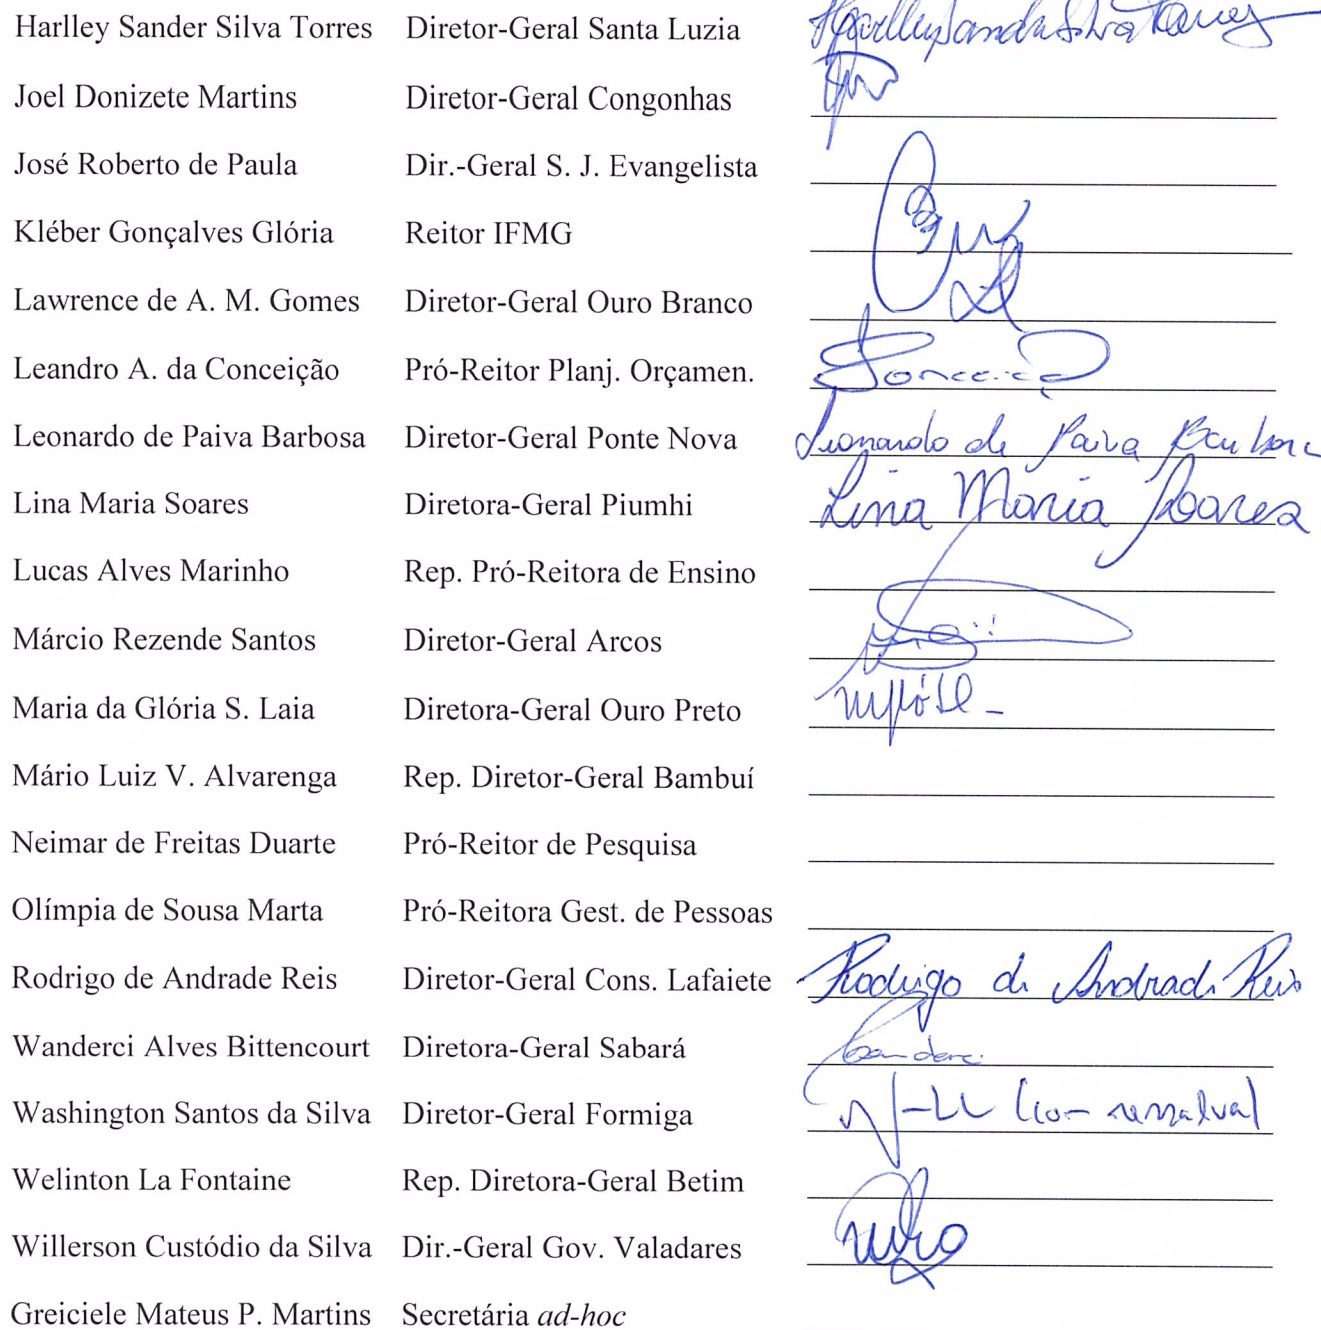 Harlley Sander Silva Torres Diretor-Geral Santa Luzia Harlley Sander Silva Torres
Joel Donizete Martins Diretor-Geral Congonhas
José Roberto de Paula Dir.-Geral S. J. Evangelista
Kléber Gonçalves Glória Reitor IFMG
Lawrence de A. M. Gomes Diretor-Geral Ouro Branco
Leandro A. da Conceição Pró-Reitor Planj. Orçamen. Conceição
Leonardo de Paiva Barbosa Diretor-Geral Ponte Nova Leonardo de Paiva Barbosa
Lina Maria Soares Diretora-Geral Piumhi Lina Maria Soares
Lucas Alves Marinho Rep. Pró-Reitora de Ensino
Márcio Rezende Santos Diretor-Geral Arcos
Maria da Glória S. Laia Diretora-Geral Ouro Preto
Mário Luiz V. Alvarenga Rep. Diretor-Geral Bambuí
Neimar de Freitas Duarte Pró-Reitor de Pesquisa
Olímpia de Sousa Marta Pró-Reitora Gest. de Pessoas
Rodrigo de Andrade Reis Diretor-Geral Cons. Lafaiete Rodrigo de Andrade Reis
Wanderci Alves Bittencourt Diretora-Geral Sabará Wanderci
Washington Santos da Silva Diretor-Geral Formiga (com ressalva)
Welinton La Fontaine Rep. Diretora-Geral Betim
Willerson Custódio da Silva Dir.-Geral Gov. Valadares
Greiciele Mateus P. Martins Secretária ad-hoc